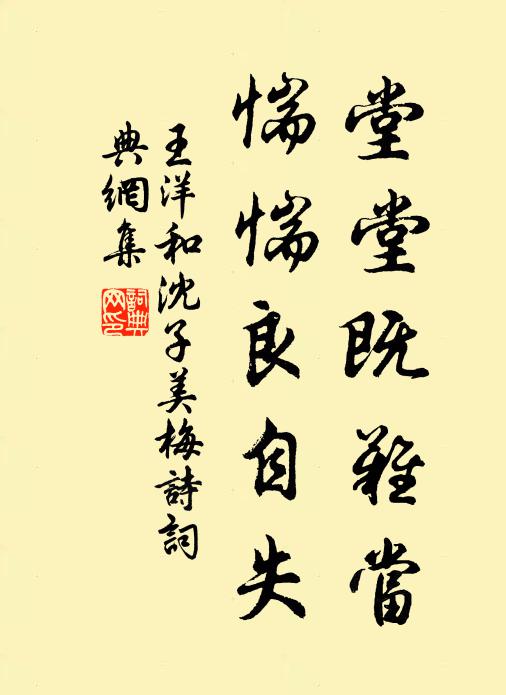 堂堂既難當
惴惴良自失
王洋和沈子美梅詩詞
典網集
詞典网印